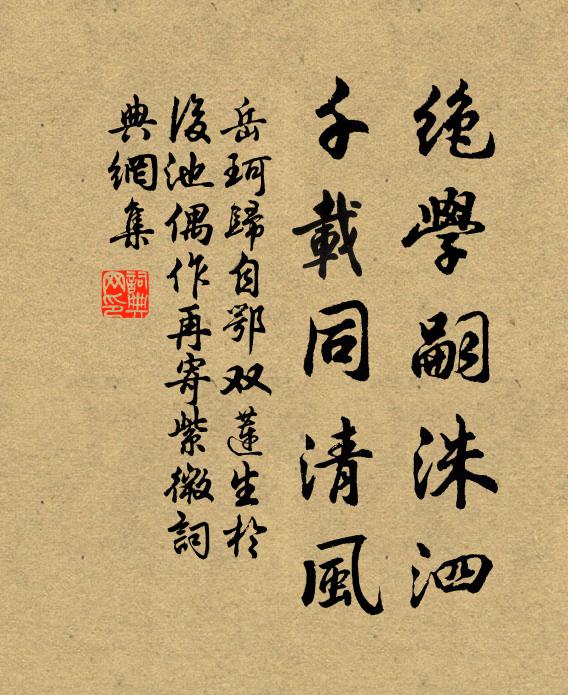 絶學嗣洙泗
千載同清風
岳珂歸自鄂双蓮生於
後池偶作再寄紫微詞
典網集
詞典网印